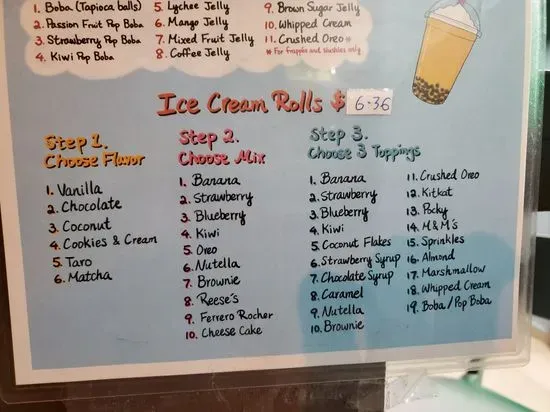 1. Boba (Tapioca balls)
2. Passion Fruit Pop Boba
3. Strawberry Pop Boba
4. Kiwi Pop Boba
5. Lychee Jelly
6. Mango Jelly
7. Mixed Fruit Jelly
8. Coffee Jelly
9. Brown Sugar Jelly
10. Whipped Cream
11. Crushed Oreo *
* For frappes and slushies only
Ice Cream Rolls $ 6.36
Step 1.
Choose Flavor
1. Vanilla
2. Chocolate
3. Coconut
4. Cookies & Cream
5. Taro
6. Matcha
Step 2.
Choose Mix
1. Banana
2. Strawberry
3. Blueberry
4. Kiwi
5. Oreo
6. Nutella
7. Brownie
8. Reese's
9. Ferrero Rocher
10. Cheese Cake
Step 3.
Choose 3 Toppings
1. Banana
2. Strawberry
3. Blueberry
4. Kiwi
5. Coconut Flakes
6. Strawberry Syrup
7. Chocolate Syrup
8. Caramel
9. Nutella
10. Brownie
11. Crushed Oreo
12. Kitkat
13. Pocky
14. M&M's
15. Sprinkles
16. Almond
17. Marshmallow
18. Whipped Cream
19. Boba / Pop Boba